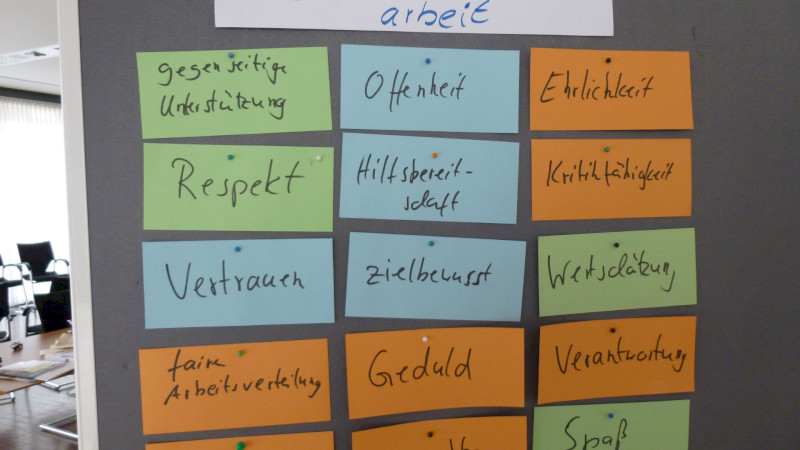 arbeit
gegenseitige
Unterstützung
Offenheit
Ehrlichkeit
Respekt
Hilfsbereit-
schaft
Kritikfähigkeit
Vertrauen
zielbewusst
Wertschätzung
faire
Arbeitsverteilung
Geduld
Verantwortung
Spaß